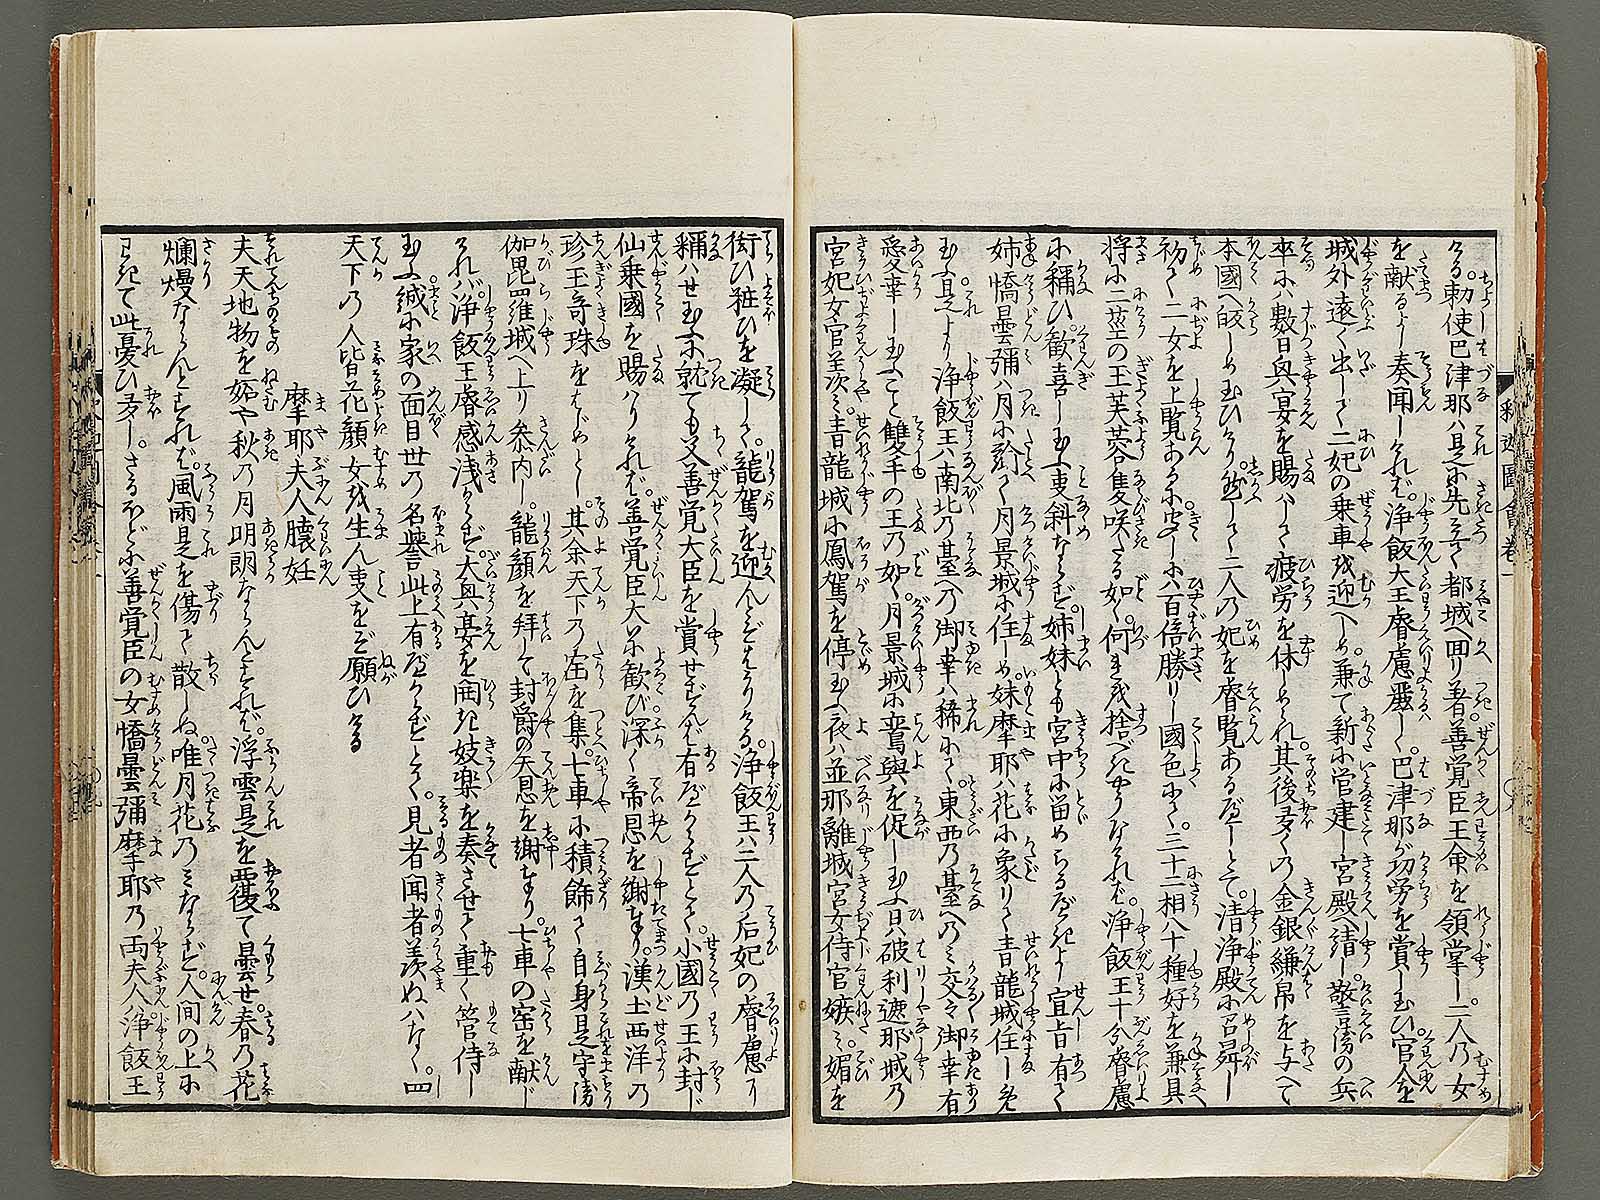 ける勅使巴津那ハ是に先立て都城へ回り着善覚臣王命を領掌し二人の女
を献るよし奏聞しければ浄飯大王睿慮麗しく巴津那が功労を賞し玉ひ官人を
城外遠く出して二妃の乗車を迎へしめ兼て新に営建し宮殿に請し警固の兵
卒にハ数日の宴を賜ハりて疲労を休しめられ其後多くの金銀縑帛を与へて
本國へ皈しめ玉ひけり然して二人の妃を睿覧あるべしとて清浄殿に召舁し
初て二女を上覧あるに聞しに八百倍勝りし國色にて三十二相八十種好を兼具
将に二茎の玉芙蓉隻咲たる如く何れを捨べきやうなければ浄飯王十分睿慮
に稱ひ歓喜し玉ふ事斜ならず姉妹とも宮中に留めらるべきよし宣旨有て
姉憍曇彌ハ月に象りて月景城に住しめ妹摩耶ハ花に象りて青龍城住しめ
玉ふ是より浄飯王ハ南北の臺への御幸ハ稀にて東西の臺へのミ交々御幸有
愛幸し玉ふこと雙手の玉の如く月景城に鸞輿を促し玉ふ日ハ破利遮耶城の
宮妃女官羨ミ青龍城に鳳駕を停玉ふ夜ハ並那離城宮女侍官嫉ミ媚を
釈迦圖會巻一
衒ひ粧ひを凝し龍駕を迎んとぞはかりける浄飯王ハ二人の后妃の睿慮に
稱ハせ玉ふに就ても父善覚大臣を賞せずんバ有べからずとて小國の王に封じ
仙乗國を賜ハりければ善覚臣大に歓び深く帝恩を謝し奉り漢土西洋の
珍玉奇珠をはじめとし其余天下の宝を集七車に積飾て自身是を守護し
伽毘羅城へ上り参内し龍顔を拝して封爵の天恩を謝し奉り七車の宝を献じ
ければ浄飯王睿感浅からず大に宴を開き妓楽を奏させて重く管待し
玉ふ誠に家の面目世の名誉此上有べからずとて見者聞者羨ぬハなく四
天下の人皆花顔女を生ん事をぞ願ひける
摩耶夫人懐妊
夫天地物を妬や秋の月明朗ならんとすれば浮雲是を覆て曇せ春の花
爛熳ならんとすれば風雨是を傷て散しぬ唯月花のミならず人間の上に
も都て此憂ひ多しさるほどに善覚臣の女憍曇彌摩耶の両夫人浄飯王